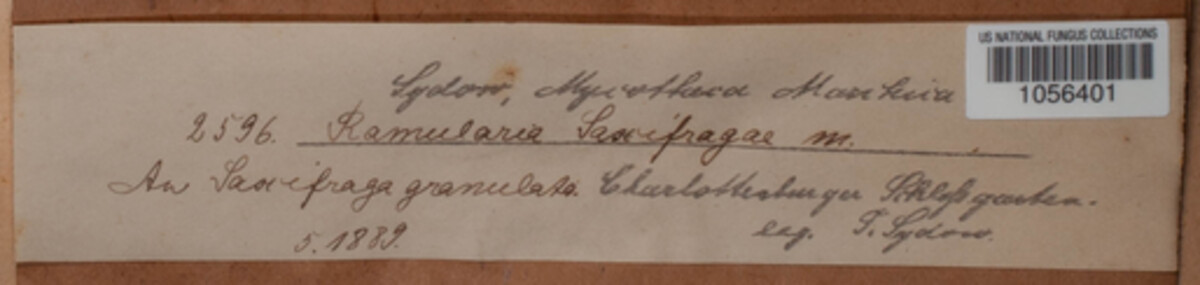 US NATIONAL FUNGUS COLLECTIONS
1056401
Sydow, Mycotheca Marchica
2596. Ramularia Saxifragae m.
An Saxifraga granulata. Charlottenburger Schloßgarten.
5. 1889. leg. P. Sydow.